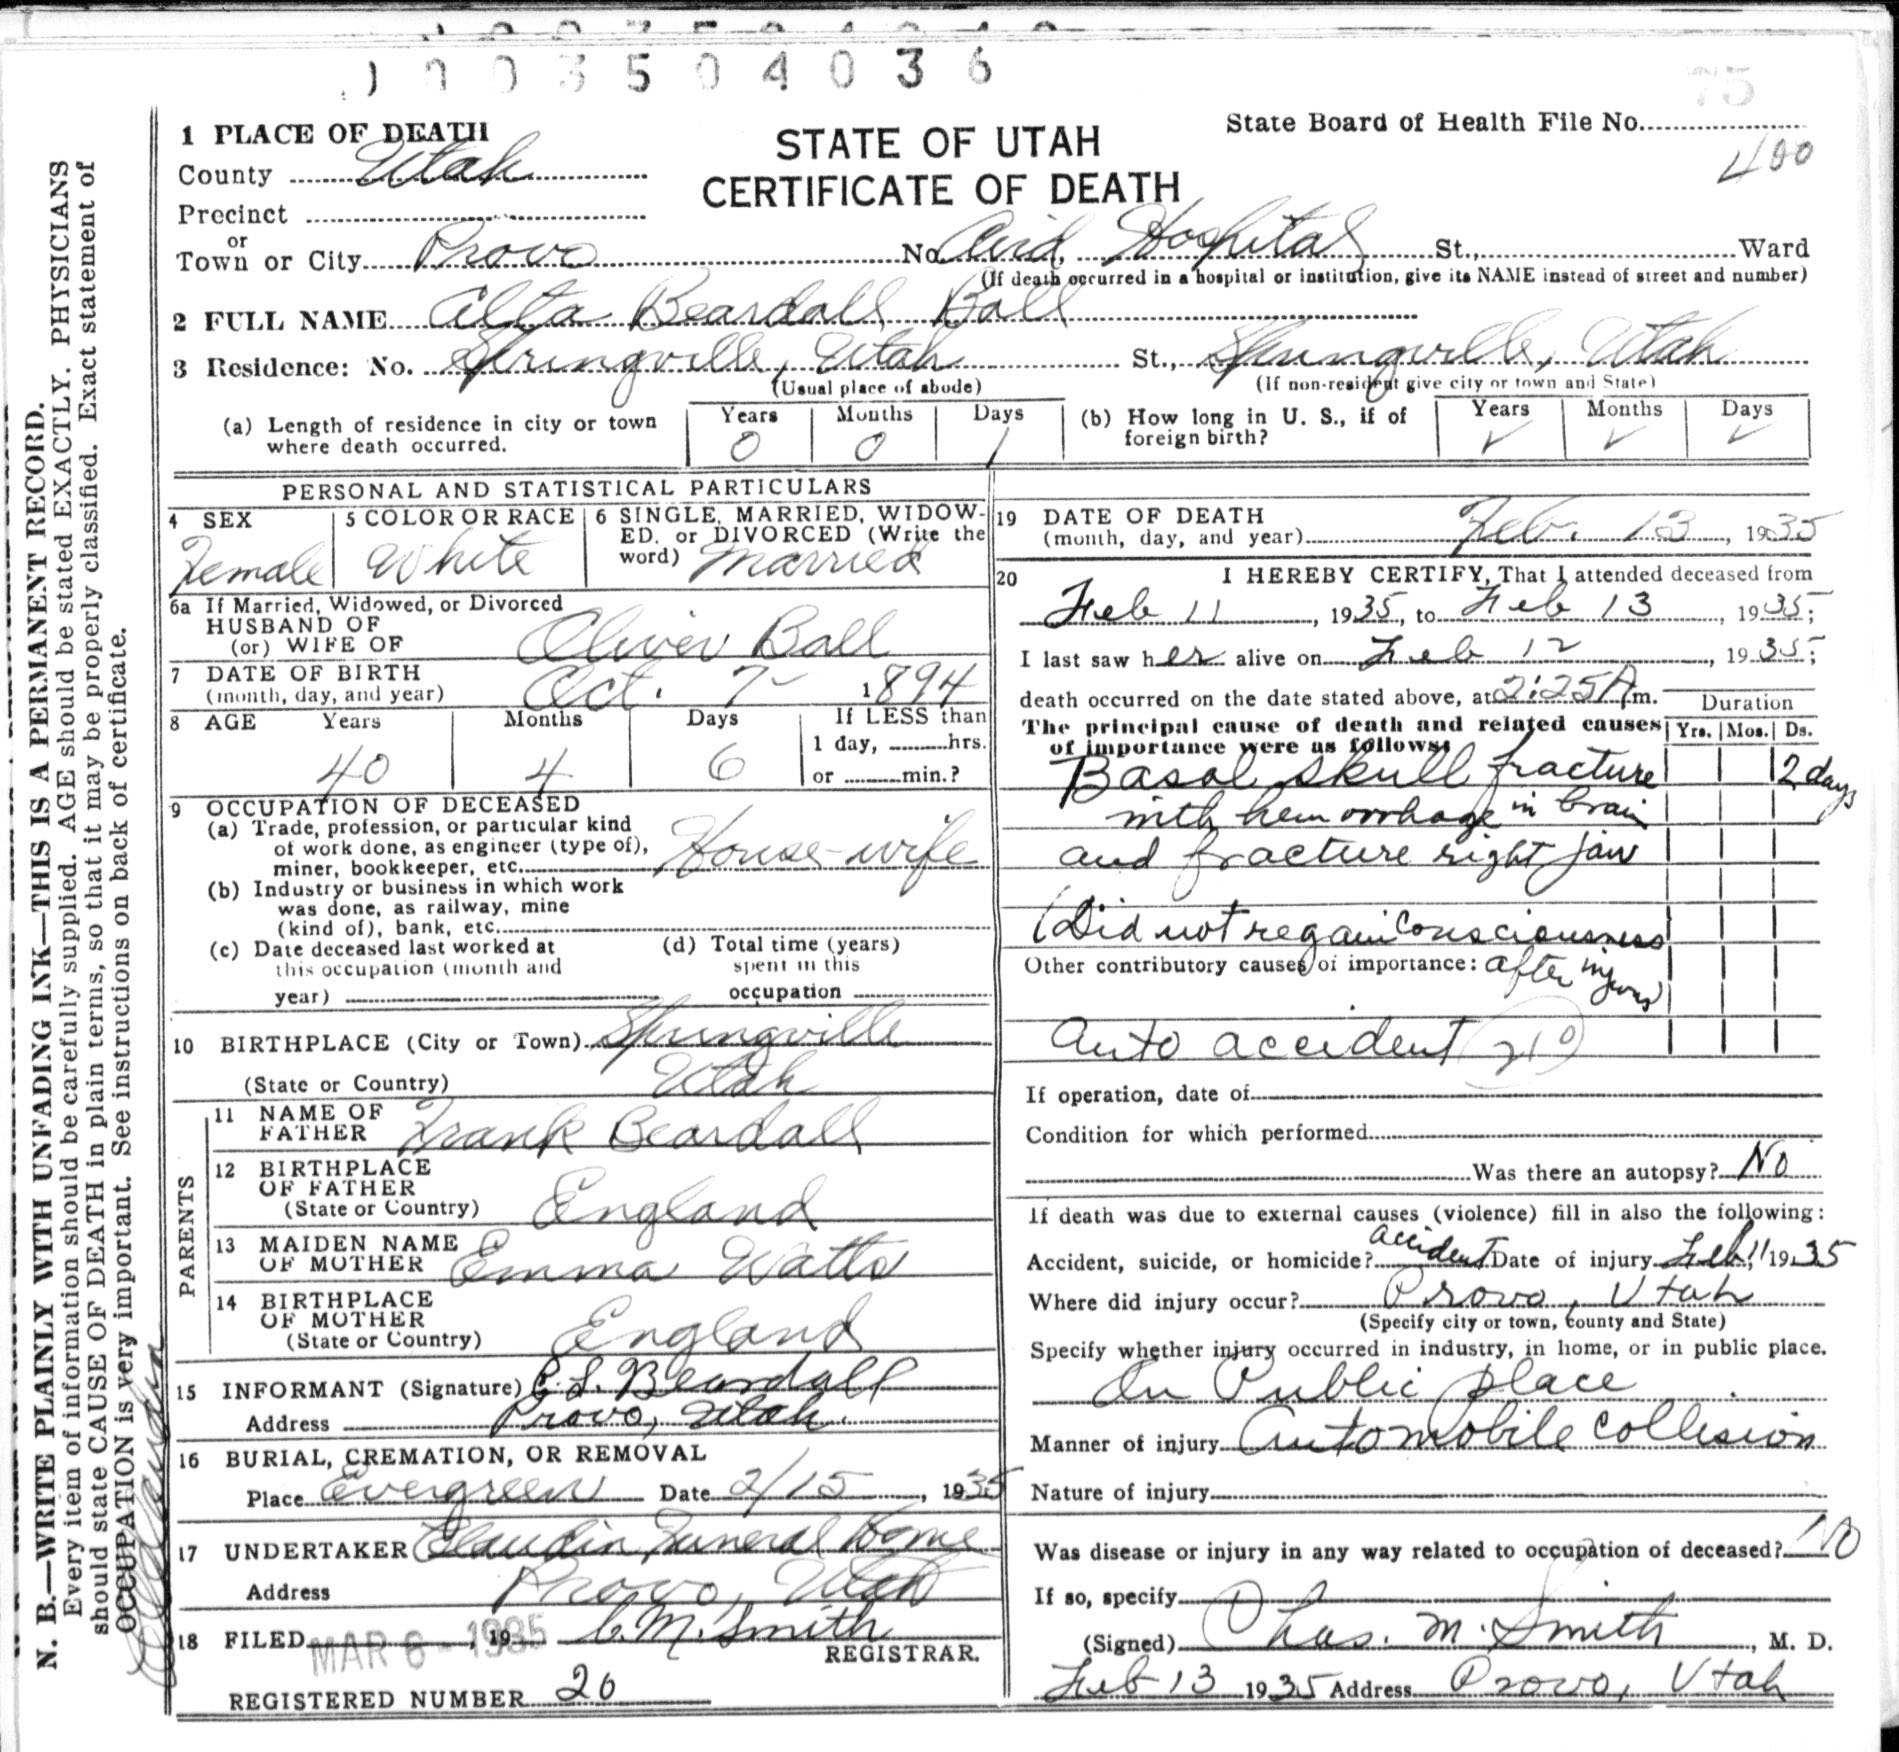 1003504036
75
1 PLACE OF DEATH
STATE OF UTAH
CERTIFICATE OF DEATH
State Board of Health File No.
400
County Utah
Precinct
or
Town or City Provo No. Aird Hospital St., Ward
(If death occurred in a hospital or institution, give its NAME instead of street and number)
2 FULL NAME Alta Beardall Ball
3 Residence: No. Springville, Utah St., Springville, Utah
(Usual place of abode) (If non-resident give city or town and State)
(a) Length of residence in city or town where death occurred. Years 0 Months 0 Days 1
(b) How long in U. S., if of foreign birth? Years ✓ Months ✓ Days ✓
PERSONAL AND STATISTICAL PARTICULARS
4 SEX Female
5 COLOR OR RACE White
6 SINGLE, MARRIED, WIDOW-
ED, or DIVORCED (Write the
word) Married
6a If Married, Widowed, or Divorced
HUSBAND OF
(or) WIFE OF Oliver Ball
7 DATE OF BIRTH
(month, day, and year) Oct. 7- 1894
8 AGE Years 40 Months 4 Days 6 If LESS than
1 day, hrs.
or min.?
9 OCCUPATION OF DECEASED
(a) Trade, profession, or particular kind
of work done, as engineer (type of),
miner, bookkeeper, etc. House-wife
(b) Industry or business in which work
was done, as railway, mine
(kind of), bank, etc.
(c) Date deceased last worked at
this occupation (month and
year)
(d) Total time (years)
spent in this
occupation
10 BIRTHPLACE (City or Town) Springville
(State or Country) Utah
PARENTS
11 NAME OF
FATHER Frank Beardall
12 BIRTHPLACE
OF FATHER
(State or Country) England
13 MAIDEN NAME
OF MOTHER Emma Watts
14 BIRTHPLACE
OF MOTHER
(State or Country) England
15 INFORMANT (Signature) E. L. Beardall
Address Provo, Utah.
16 BURIAL, CREMATION, OR REMOVAL
Place Evergreen Date 2/15, 1935
17 UNDERTAKER Claudin Funeral Home
Address Provo, Utah
18 FILED MAR 6 - 1935, 19 C. M. Smith
REGISTRAR.
REGISTERED NUMBER 26
19 DATE OF DEATH
(month, day, and year) Feb. 13, 1935
20 I HEREBY CERTIFY, That I attended deceased from
Feb 11, 1935, to Feb 13, 1935;
I last saw her alive on Feb 12, 1935;
death occurred on the date stated above, at 2:25 A m.
Duration
The principal cause of death and related causes
of importance were as follows:
Yrs. Mos. Ds.
Basal skull fracture 2 days
with hemorrhage in brain
and fracture right jaw
(Did not regain consciousness
Other contributory causes of importance: after injury)
Auto accident 210
If operation, date of
Condition for which performed
Was there an autopsy? No
If death was due to external causes (violence) fill in also the following:
Accident, suicide, or homicide? accident Date of injury Feb, 11 1935
Where did injury occur? Provo, Utah
(Specify city or town, county and State)
Specify whether injury occurred in industry, in home, or in public place.
In Public place
Manner of injury Automobile collision
Nature of injury
Was disease or injury in any way related to occupation of deceased? No
If so, specify
(Signed) Chas. M. Smith, M. D.
Feb 13 1935 Address Provo, Utah
N. B.—WRITE PLAINLY WITH UNFADING INK—THIS IS A PERMANENT RECORD.
Every item of information should be carefully supplied. AGE should be stated EXACTLY. PHYSICIANS
should state CAUSE OF DEATH in plain terms, so that it may be properly classified. Exact statement of
OCCUPATION is very important. See instructions on back of certificate.